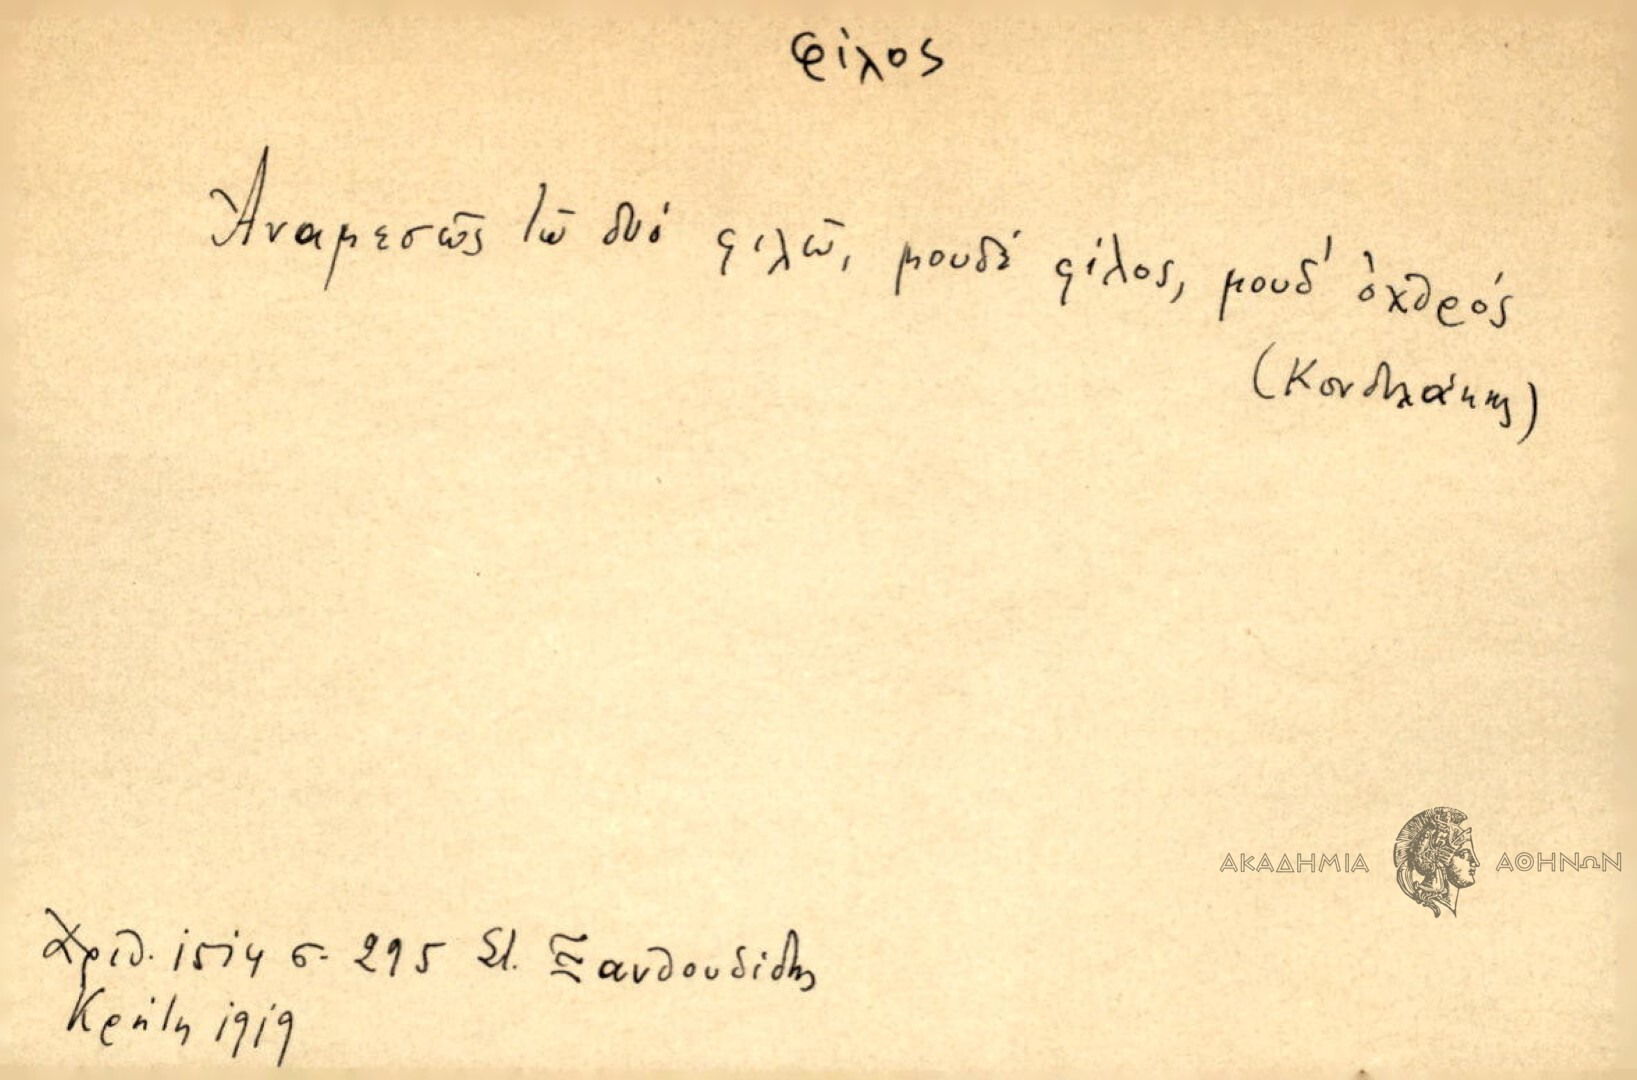 φίλος
Ἀναμεσῶς τῶ δυό φιλῶ, μουδέ φίλος, μουδ' ὀχθρός
(Κονδυλάκης)
ΑΚΑΔΗΜΙΑ ΑΘΗΝΩΝ
Ἀριθ. 1514 σ. 295 Στ. Ξανθουδίδης
Κρήτη 1919